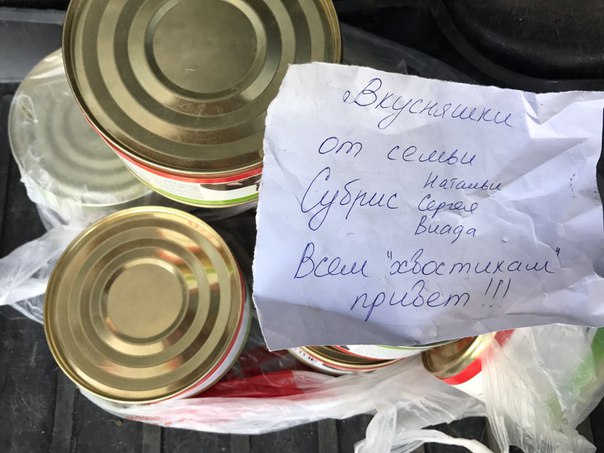 Вкусняшки
от семьи
Субрис Натальи
Сергея
Влада
Всем "хвостикам"
привет!!!